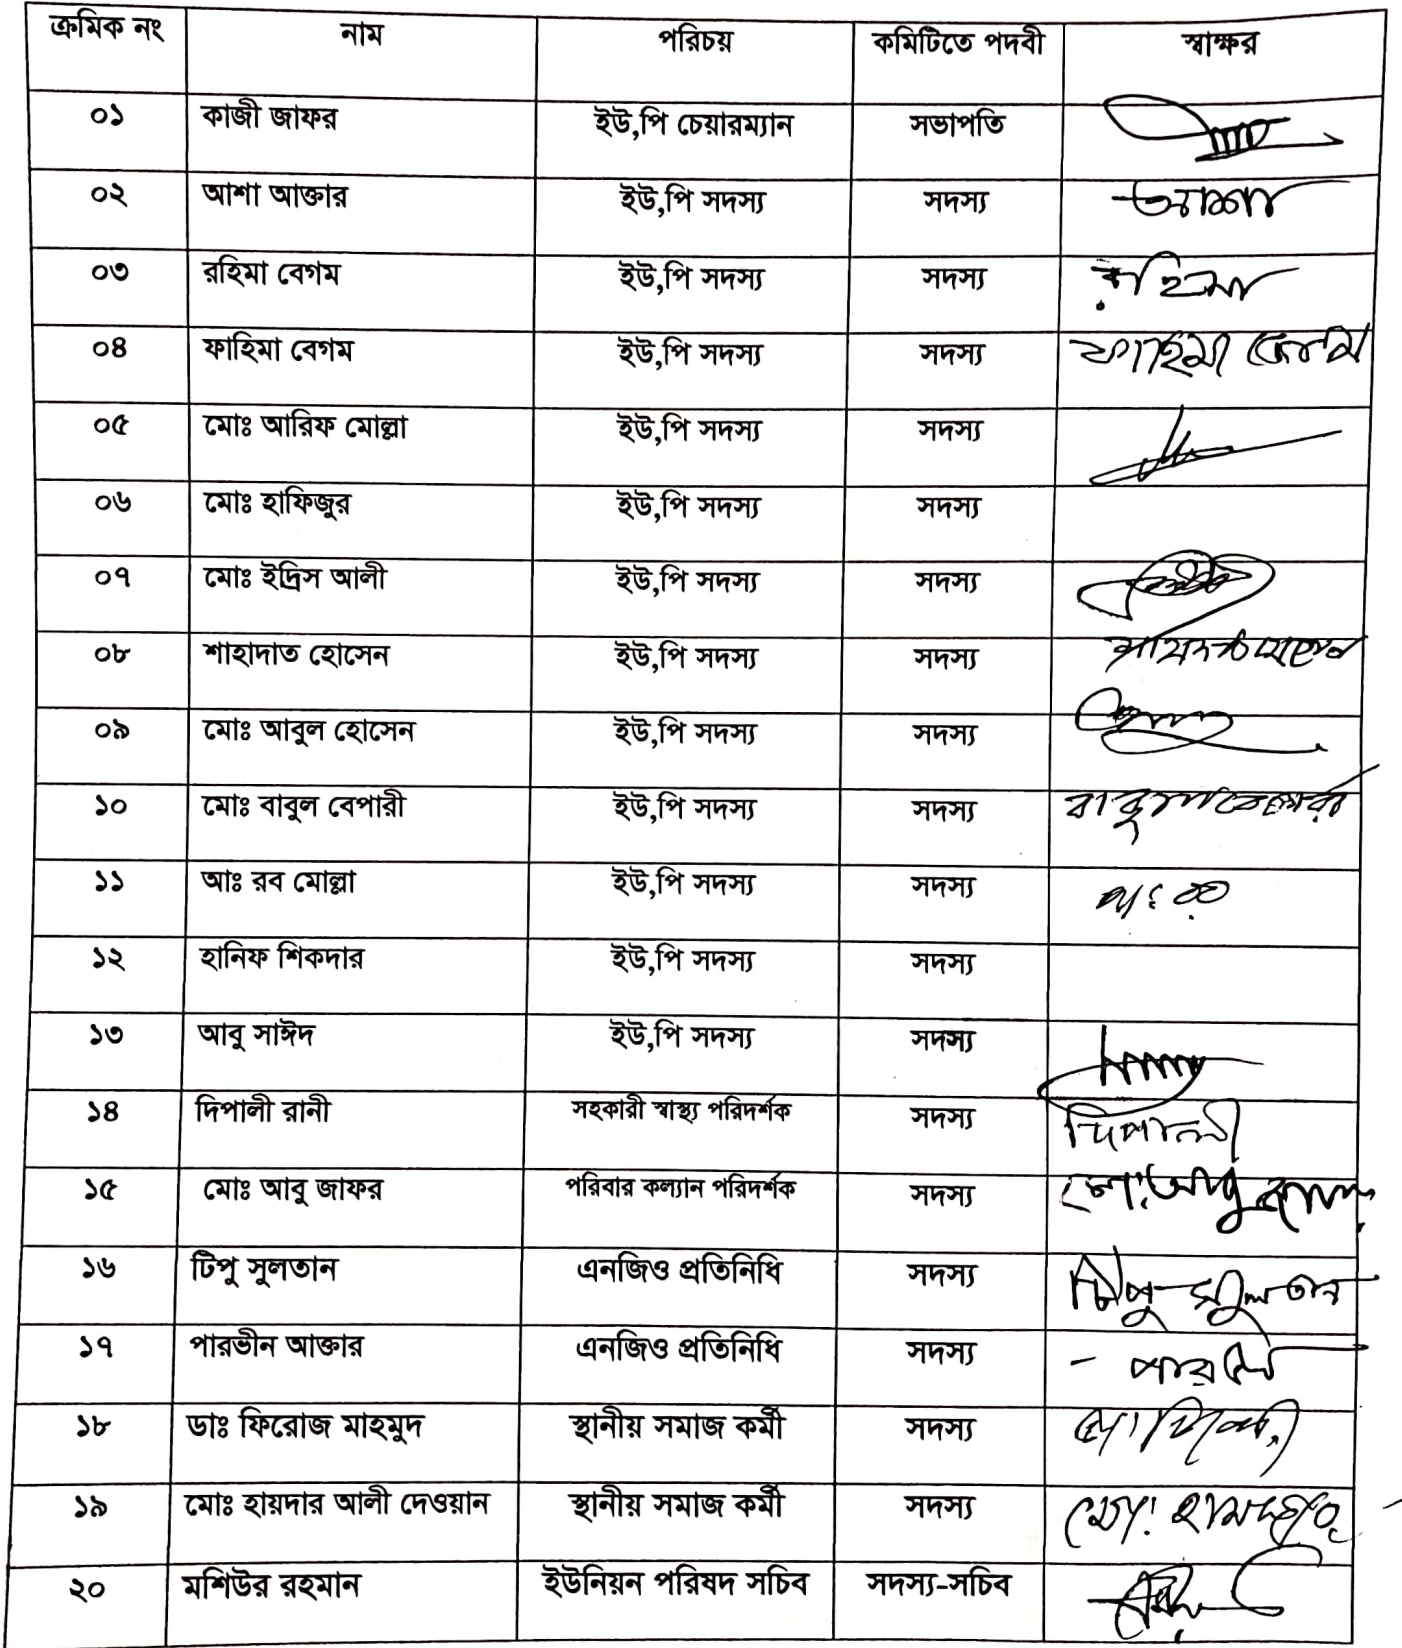 ক্রমিক নং নাম পরিচয় কমিটিতে পদবী স্বাক্ষর
০১ কাজী জাফর ইউ,পি চেয়ারম্যান সভাপতি
০২ আশা আক্তার ইউ,পি সদস্য সদস্য আশা
০৩ রহিমা বেগম ইউ,পি সদস্য সদস্য রহিমা
০৪ ফাহিমা বেগম ইউ,পি সদস্য সদস্য ফাহিমা বেগম
০৫ মোঃ আরিফ মোল্লা ইউ,পি সদস্য সদস্য
০৬ মোঃ হাফিজুর ইউ,পি সদস্য সদস্য
০৭ মোঃ ইদ্রিস আলী ইউ,পি সদস্য সদস্য
০৮ শাহাদাত হোসেন ইউ,পি সদস্য সদস্য
০৯ মোঃ আবুল হোসেন ইউ,পি সদস্য সদস্য
১০ মোঃ বাবুল বেপারী ইউ,পি সদস্য সদস্য বাবুল বেপারী
১১ আঃ রব মোল্লা ইউ,পি সদস্য সদস্য আঃ রব
১২ হানিফ শিকদার ইউ,পি সদস্য সদস্য
১৩ আবু সাঈদ ইউ,পি সদস্য সদস্য
১৪ দিপালী রানী সহকারী স্বাস্থ্য পরিদর্শক সদস্য দিপালী
১৫ মোঃ আবু জাফর পরিবার কল্যান পরিদর্শক সদস্য মো: আবু জাফর
১৬ টিপু সুলতান এনজিও প্রতিনিধি সদস্য টিপু সুলতান
১৭ পারভীন আক্তার এনজিও প্রতিনিধি সদস্য
১৮ ডাঃ ফিরোজ মাহমুদ স্থানীয় সমাজ কর্মী সদস্য
১৯ মোঃ হায়দার আলী দেওয়ান স্থানীয় সমাজ কর্মী সদস্য
২০ মশিউর রহমান ইউনিয়ন পরিষদ সচিব সদস্য-সচিব